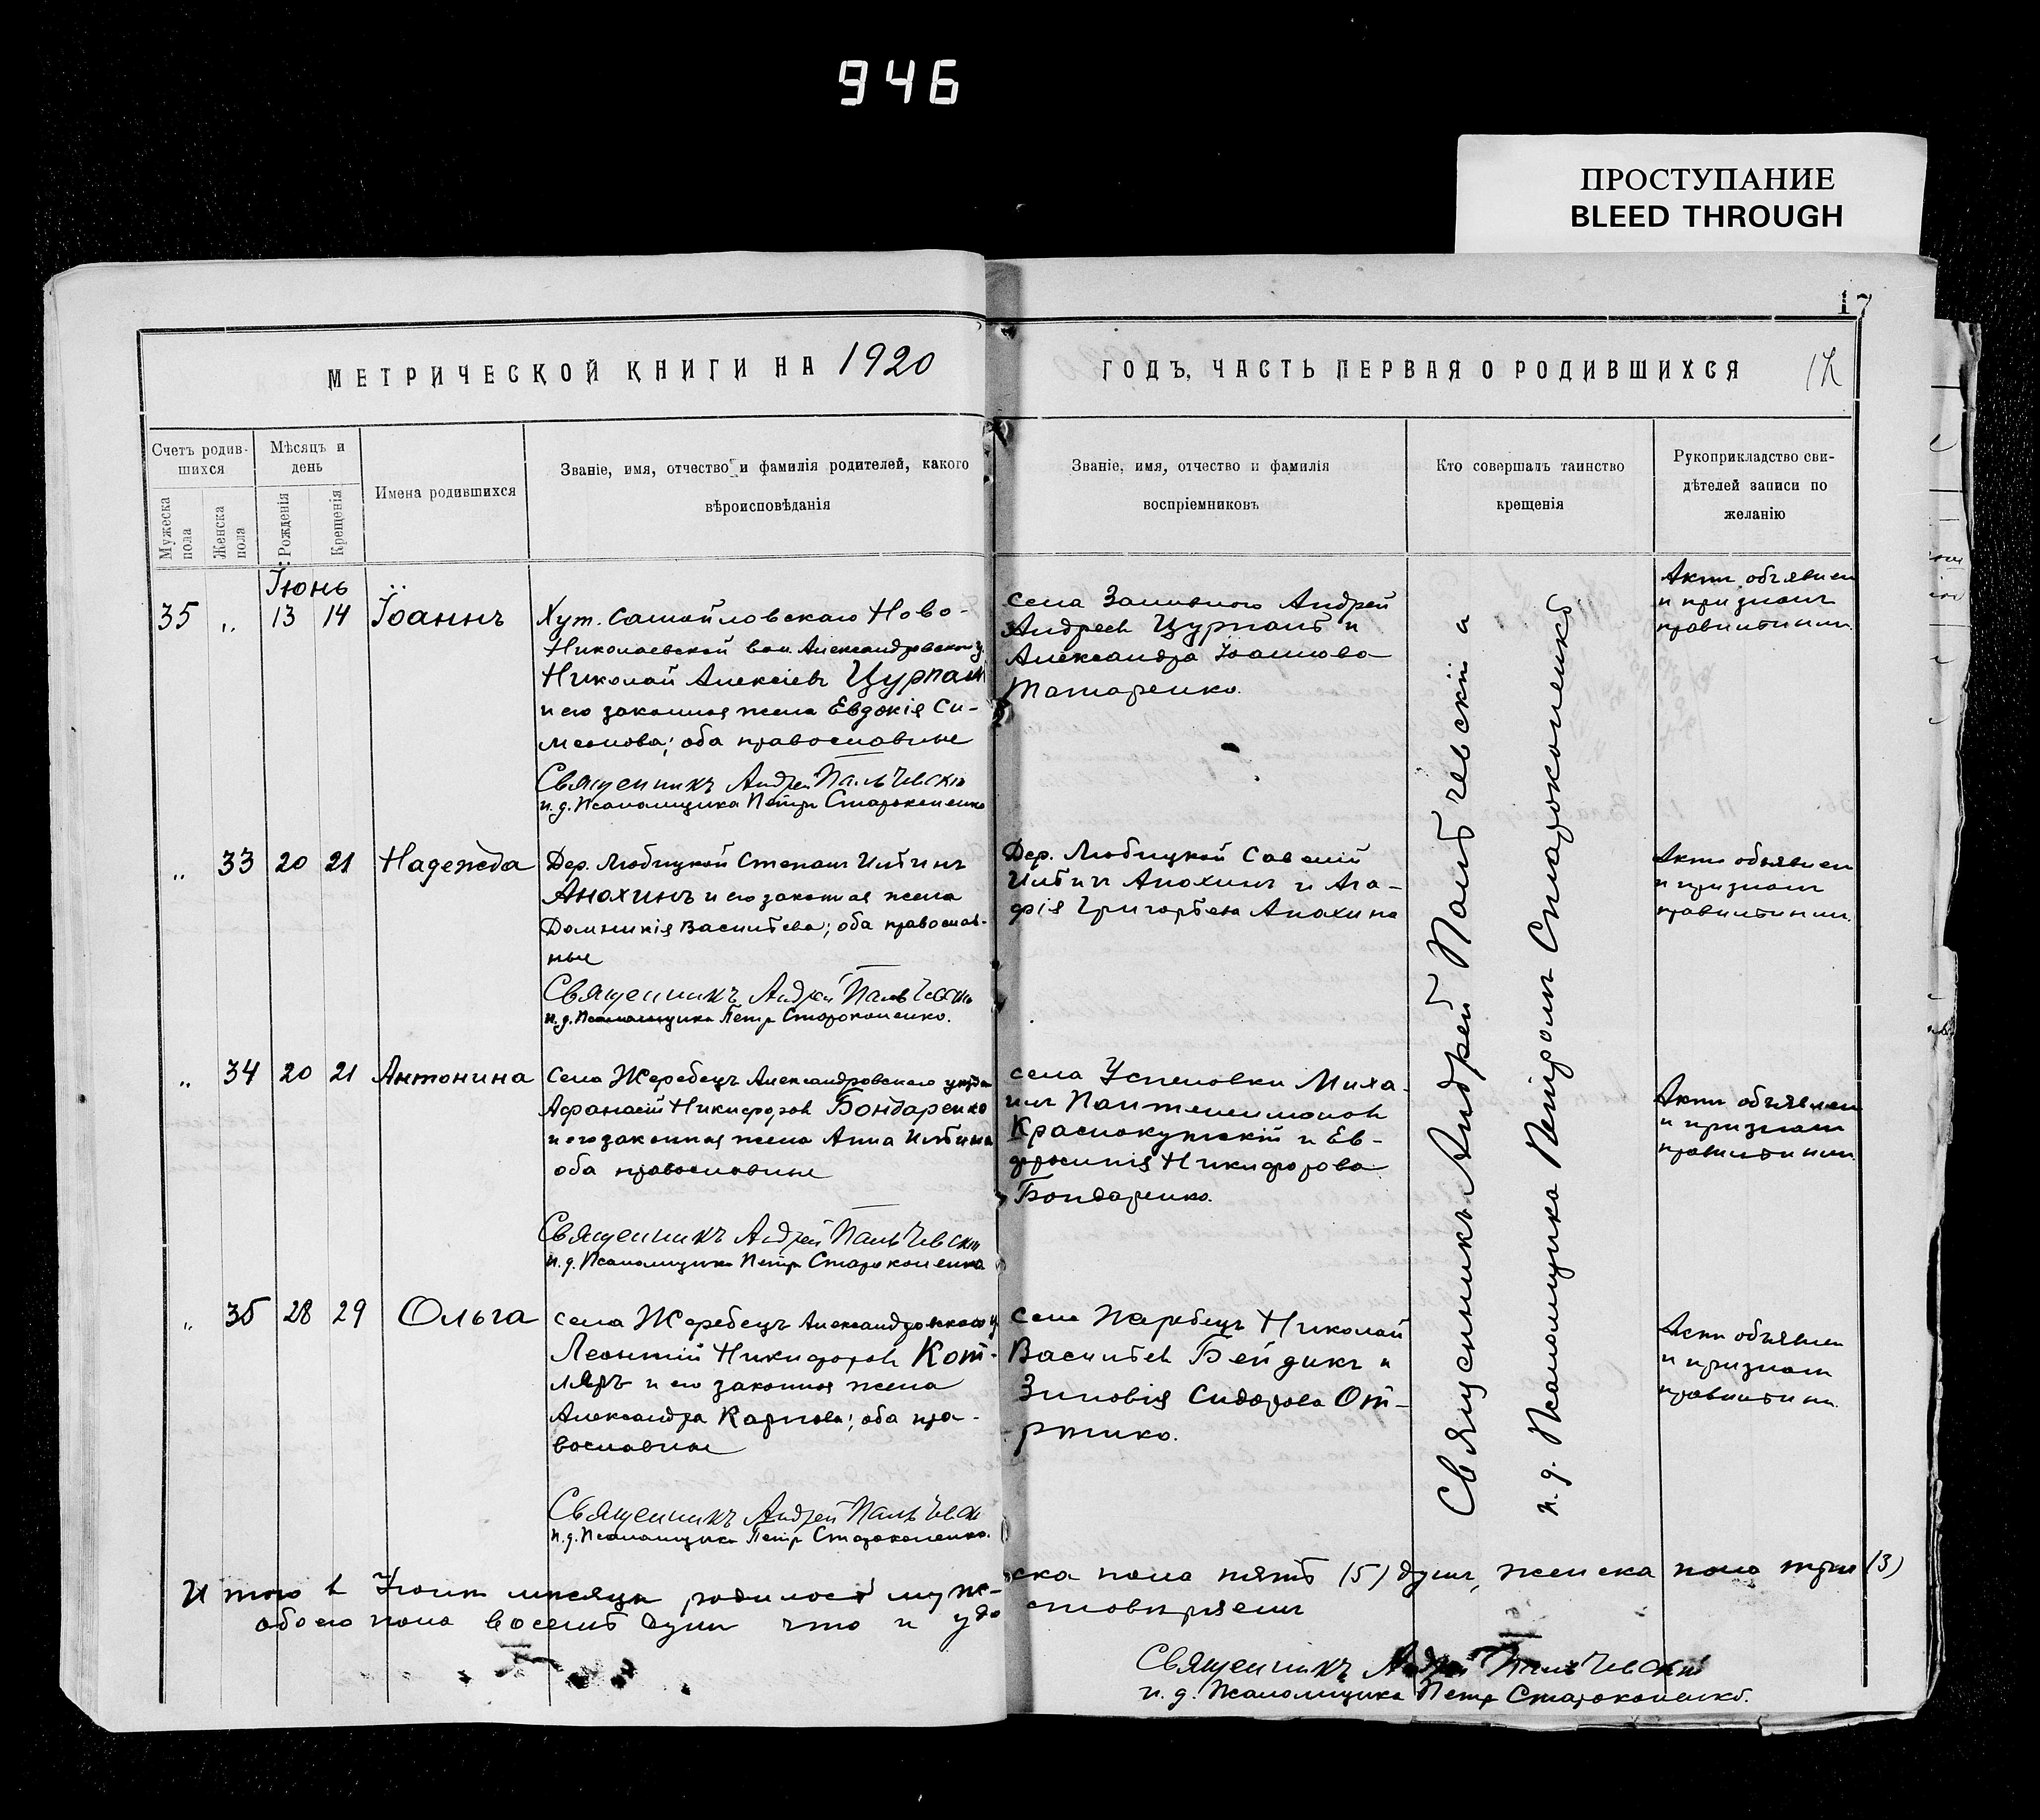 946
ПРОСТУПАНИЕ
BLEED THROUGH
17
МЕТРИЧЕСКОЙ КНИГИ НА 1920
ГОДЪ, ЧАСТЬ ПЕРВАЯ О РОДИВШИХСЯ
Счетъ родив-
шихся
Мужеска
пола
Женска
пола
Мѣсяцъ и
день
Рожденія
Крещенія
Имена родившихся
Званіе, имя, отчество и фамилія родителей, какого
вѣроисповѣданія
Званіе, имя, отчество и фамилія
воспріемниковъ
Кто совершалъ таинство
крещенія
Рукоприкладство сви-
дѣтелей записи по
желанію
Іюнь
35 „ 13 14 Іоаннъ
Хут. Самойловскаго Ново-
Николаевской вол. Александровскаго у.
Николай Алексіевъ Цурпалъ
и его законная жена Евдокія Си-
меонова; оба православные
Священникъ Андрей Пальчевскій
и. д. Псаломщика Петръ Староконенко
села Заливного Андрей
Андреевъ Цурпалъ и
Александра Іоаннова
Татаренко.
Актъ объявленъ
и признанъ
правильнымъ.
„ 33 20 21 Надежда
Дер. Любицкой Степанъ Ильинъ
Анохинъ и его законная жена
Домникія Васильева; оба православ-
ные
Священникъ Андрей Пальчевскій
и. д. Псаломщика Петръ Староконенко.
Дер. Любицкой Савелій
Ильинъ Анохинъ и Ага-
фія Григорьева Анохина
Актъ объявленъ
и признанъ
правильнымъ.
„ 34 20 21 Антонина
Села Жеребецъ Александровскаго уѣзда
Афанасій Никифоровъ Бондаренко
и его законная жена Анна Ильина
оба православные
Священникъ Андрей Пальчевскій
и. д. Псаломщика Петръ Староконенко
села Успеновки Миха-
илъ Пантелеимоновъ
Краснокутскій и Ев-
фросинія Никифорова
Бондаренко.
Актъ объявленъ
и признанъ
правильнымъ.
„ 35 28 29 Ольга
села Жеребецъ Александровскаго у.
Леонтій Никифоровъ Кот-
ляръ и его законная жена
Александра Карпова; оба пра-
вославные
Священникъ Андрей Пальчевскій
и. д. Псаломщика Петръ Староконенко.
села Жеребецъ Николай
Васильевъ Бейдикъ и
Зиновія Сидорова
Актъ объявленъ
и признанъ
правильнымъ.
Священникъ Андрей Пальчевскій и
и. д. Псаломщика Петромъ Староконенко
Итого въ Іюнѣ мѣсяцѣ родилось муже-
ска пола пять (5) душъ, женска пола три (3)
обоего пола восемь душъ что и удо
стовѣряемъ
Священникъ Андрей Пальчевскій
и. д. Псаломщика Петръ Староконенко.